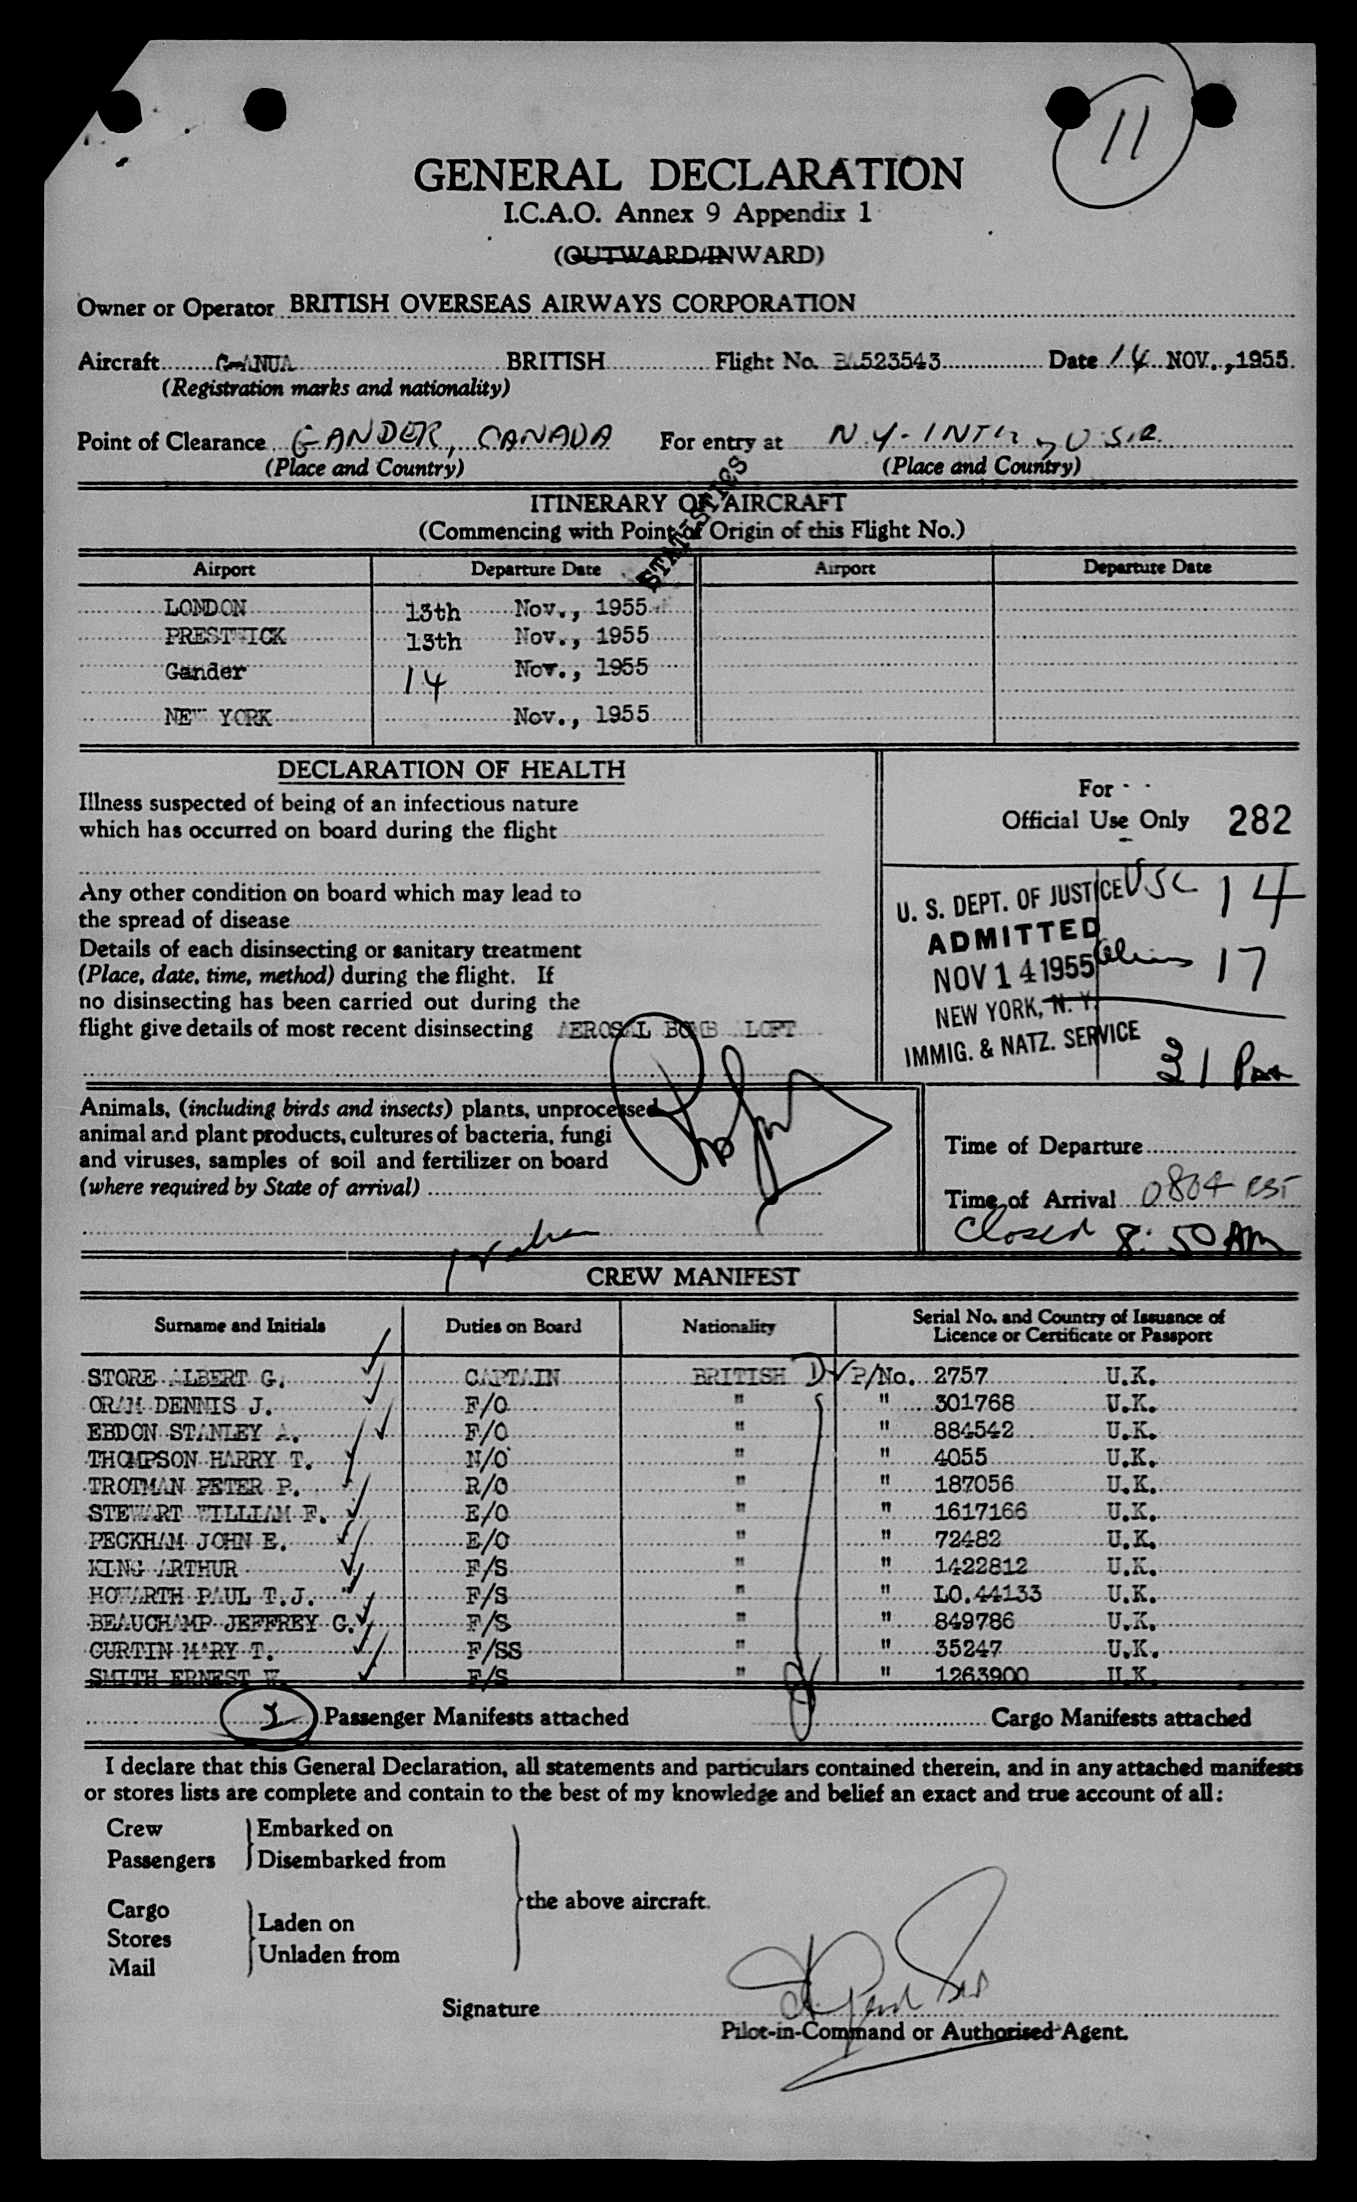 11
GENERAL DECLARATION
I.C.A.O. Annex 9 Appendix 1
(OUTWARD/INWARD)
Owner or Operator BRITISH OVERSEAS AIRWAYS CORPORATION
Aircraft G-ANUA BRITISH Flight No. BA523543 Date 14 NOV., 1955.
(Registration marks and nationality)
Point of Clearance GANDER, CANADA For entry at N.Y-INTL, U.S.A.
(Place and Country) (Place and Country)
STATISTICS
ITINERARY OF AIRCRAFT
(Commencing with Point of Origin of this Flight No.)
Airport Departure Date Airport Departure Date
LONDON 13th Nov., 1955
PRESTWICK 13th Nov., 1955
Gander 14 Nov., 1955
NEW YORK Nov., 1955
DECLARATION OF HEALTH
Illness suspected of being of an infectious nature
which has occurred on board during the flight
Any other condition on board which may lead to
the spread of disease
Details of each disinsecting or sanitary treatment
(Place, date, time, method) during the flight. If
no disinsecting has been carried out during the
flight give details of most recent disinsecting AEROSAL BOMB ALOFT
For
Official Use Only 282
U. S. DEPT. OF JUSTICE USC 14
ADMITTED
NOV 14 1955 Aliens 17
NEW YORK, N. Y.
IMMIG. & NATZ. SERVICE
31 Pax
Animals, (including birds and insects) plants, unprocessed
animal and plant products, cultures of bacteria, fungi
and viruses, samples of soil and fertilizer on board
(where required by State of arrival)
Time of Departure
Time of Arrival 0804 EST
Closed 8:50 AM
CREW MANIFEST
Surname and Initials Duties on Board Nationality Serial No. and Country of Issuance of
Licence or Certificate or Passport
STORE ALBERT G. CAPTAIN BRITISH P/No. 2757 U.K.
ORAM DENNIS J. F/O " " 301768 U.K.
EBDON STANLEY A. F/O " " 884542 U.K.
THOMPSON HARRY T. N/O " " 4055 U.K.
TROTMAN PETER P. R/O " " 187056 U.K.
STEWART WILLIAM F. E/O " " 1617166 U.K.
PECKHAM JOHN E. E/O " " 72482 U.K.
KING ARTHUR F/S " " 1422812 U.K.
HOWARTH PAUL T.J. F/S " " LO.44133 U.K.
BEAUCHAMP JEFFREY G. F/S " " 849786 U.K.
CURTIN MARY T. F/SS " " 35247 U.K.
SMITH ERNEST W. F/S " " 1263900 U.K.
2 Passenger Manifests attached Cargo Manifests attached
I declare that this General Declaration, all statements and particulars contained therein, and in any attached manifests
or stores lists are complete and contain to the best of my knowledge and belief an exact and true account of all:
Crew Embarked on
Passengers Disembarked from
the above aircraft.
Cargo Laden on
Stores
Mail Unladen from
Signature
Pilot-in-Command or Authorised Agent.